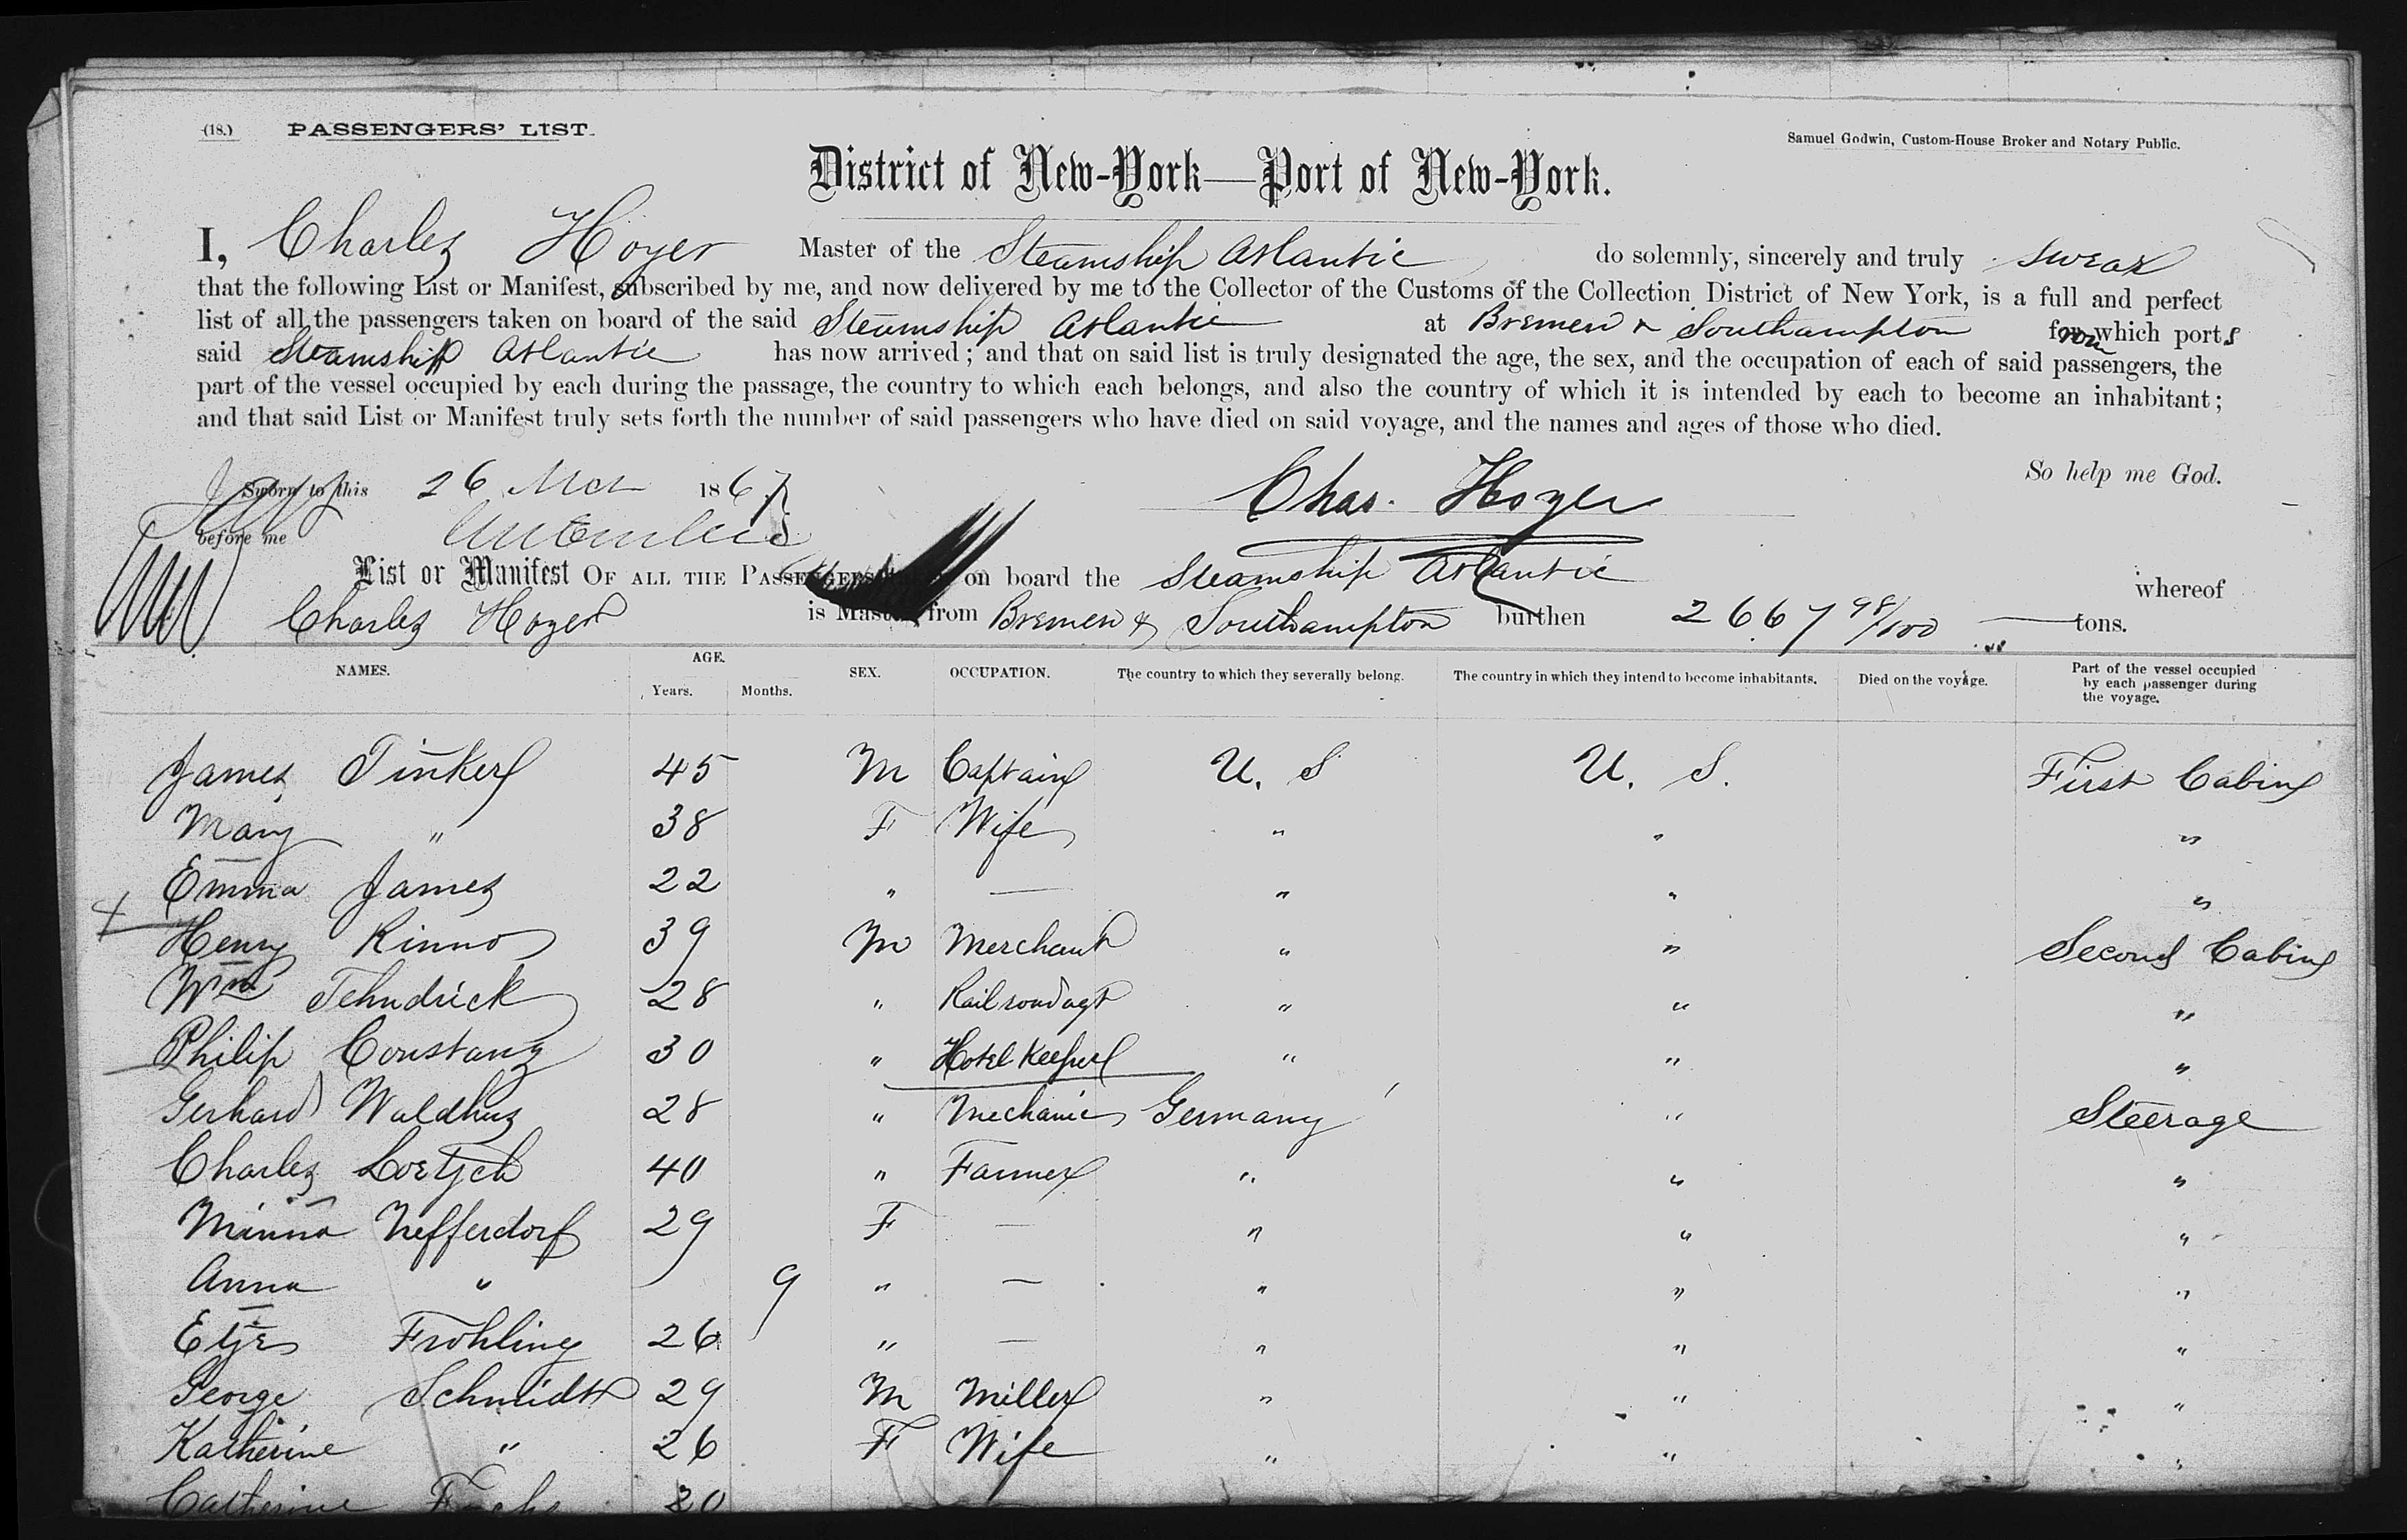 (18.) PASSENGERS' LIST.
Samuel Godwin, Custom-House Broker and Notary Public.
District of New-York—Port of New-York.
I, Charles Hoyer Master of the Steamship Atlantic do solemnly, sincerely and truly swear
that the following List or Manifest, subscribed by me, and now delivered by me to the Collector of the Customs of the Collection District of New York, is a full and perfect
list of all the passengers taken on board of the said Steamship Atlantic at Bremen & Southampton from which ports
said Steamship Atlantic has now arrived; and that on said list is truly designated the age, the sex, and the occupation of each of said passengers, the
part of the vessel occupied by each during the passage, the country to which each belongs, and also the country of which it is intended by each to become an inhabitant;
and that said List or Manifest truly sets forth the number of said passengers who have died on said voyage, and the names and ages of those who died.
So help me God.
Sworn to this 26 Mch 1867 Chas. Hoyer
before me
List or Manifest OF ALL THE PASSENGERS on board the Steamship Atlantic whereof
Charles Hoyer is Master, from Bremen & Southampton burthen 2667 98/100 tons.
NAMES. AGE. Years. Months. SEX. OCCUPATION. The country to which they severally belong. The country in which they intend to become inhabitants. Died on the voyage. Part of the vessel occupied by each passenger during the voyage.
James Tinker 45 M Captain U. S U. S. First Cabin
Mary " 38 F Wife " " "
Emma James 22 " — " " "
Henry Rinno 39 M Merchant " " Second Cabin
Wm Tehndrick 28 " Railroad agt " " "
Philip Constanz 30 " Hotel Keeper " " "
Gerhard Waldhus 28 " Mechanic Germany " Steerage
Charles Loetsch 40 " Farmer " " "
Minna Nefferdorf 29 F — " " "
Anna " 9 " — " " "
Etje Frohling 26 " — " " "
George Schmidt 29 M Miller " " "
Katherine " 26 F Wife " " "
Catherine Fuchs 20